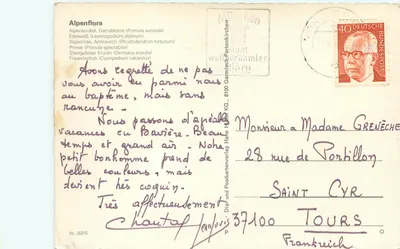 Alpenflora
Alpenaurikel, Gamsblume (Primula auricula)
Edelweiß (Leontopodium alpinum)
Alpenrose, Almrausch (Rhododendron hirsutum)
Primel (Primula spectabilis)
Stengelloser Enzian (Gentiana acaulis)
Frauenschuh (Cypripedium calceolus)
40
DEUTSCHE BUNDESPOST
Avons regretté de ne pas
vous avoir eu parmi nous
au baptême, mais sans
rancune.
Nous passons d'agréables
vacances en Bavière. Beau
temps et grand air. Notre
petit bonhomme prend de
belles couleurs, mais
devient très coquin.
Très affectueusement
Chantal Jean Louis
Monsieur & Madame GRENÈCHE
28 rue de Portillon
SAINT CYR
37100 TOURS
Frankreich
8100 Garmisch-Partenkirchen